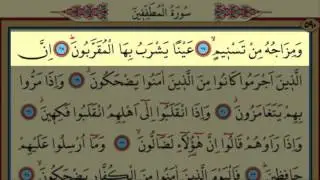 سُورَةُ الْمُطَفِّفِينَ
وَمِزَاجُهُ مِنْ تَسْنِيمٍ ﴿٢٧﴾ عَيْنًا يَشْرَبُ بِهَا الْمُقَرَّبُونَ ﴿٢٨﴾ إِنَّ
الَّذِينَ أَجْرَمُوا كَانُوا مِنَ الَّذِينَ آمَنُوا يَضْحَكُونَ ﴿٢٩﴾ وَإِذَا مَرُّوا
بِهِمْ يَتَغَامَزُونَ ﴿٣٠﴾ وَإِذَا انْقَلَبُوا إِلَى أَهْلِهِمُ انْقَلَبُوا فَكِهِينَ ﴿٣١﴾
وَإِذَا رَأَوْهُمْ قَالُوا إِنَّ هَؤُلَاءِ لَضَالُّونَ ﴿٣٢﴾ وَمَا أُرْسِلُوا عَلَيْهِمْ
حَافِظِينَ ﴿٣٣﴾ فَالْيَوْمَ الَّذِينَ آمَنُوا مِنَ الْكُفَّارِ يَضْحَكُونَ ﴿٣٤﴾